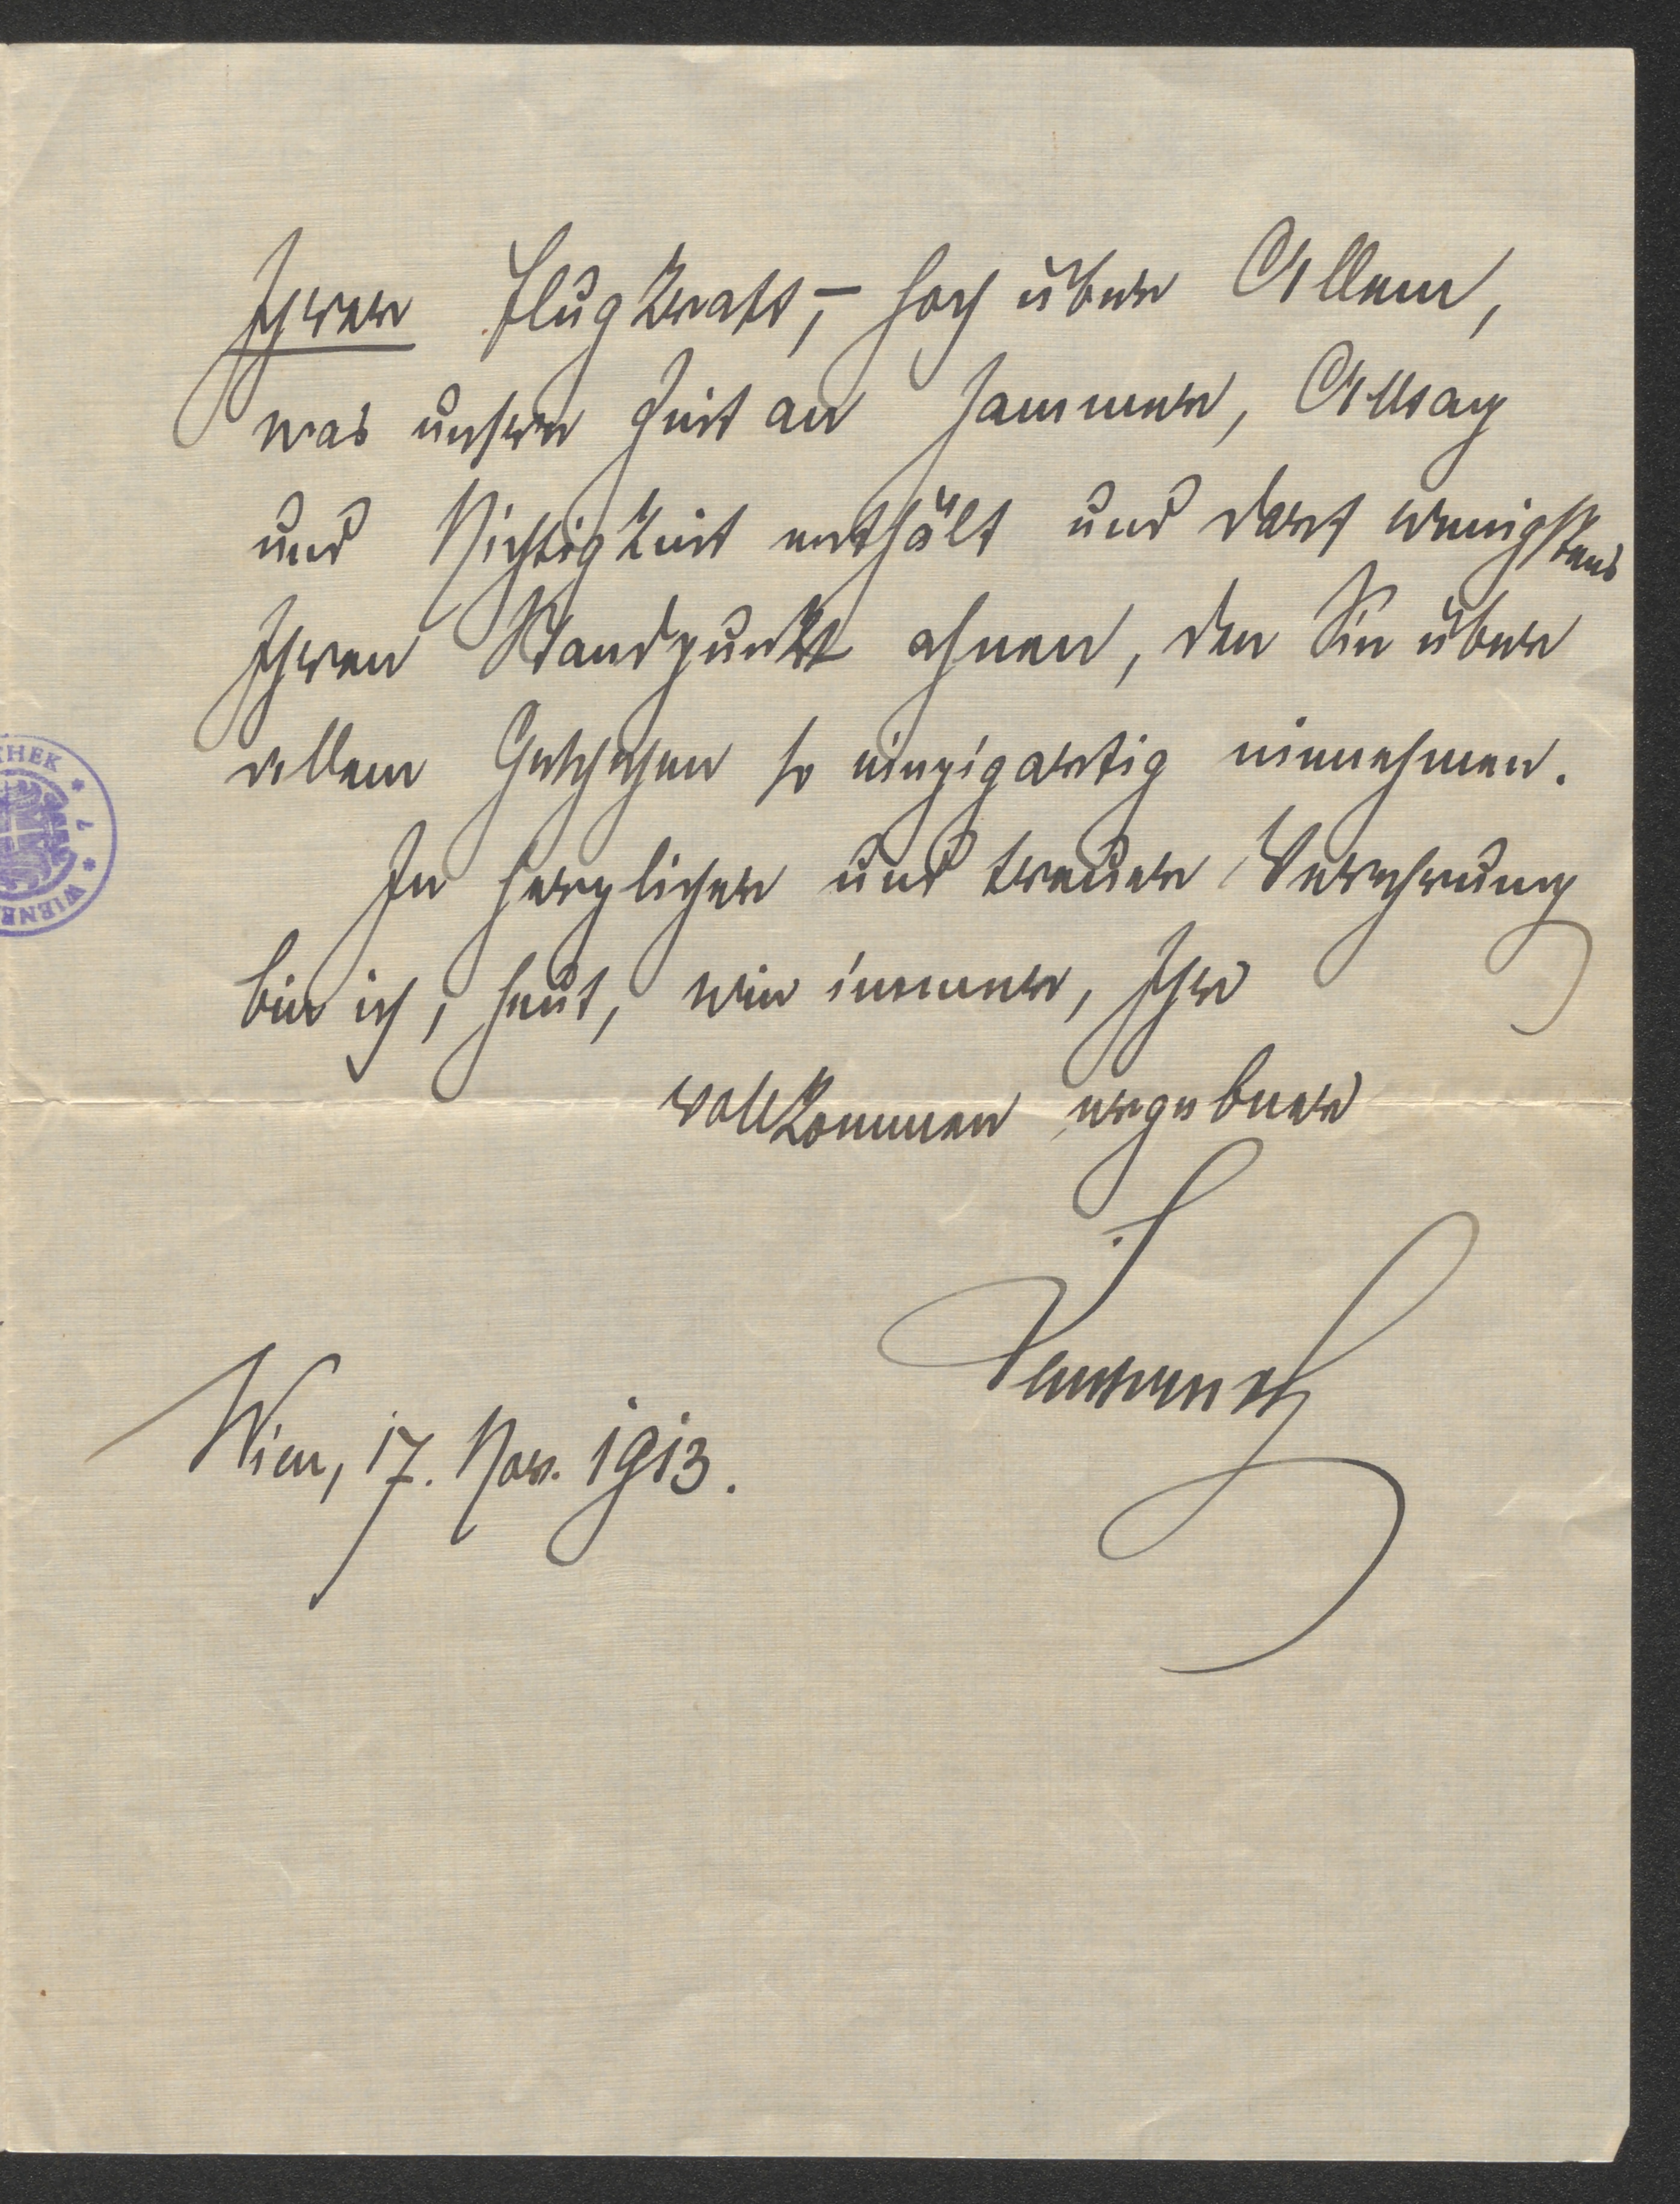 Ihrer Flugkraft, – hoch über Allem,
was unsere Zeit an Jammer, Alltag
und Nichtigkeit enthält und darf wenigstens
Ihren Standpunkt ahnen, den Sie über
allem Geschehen so einzigartig einnehmen.
In herzlicher und treuer Verehrung
bin ich, heut, wie immer, Ihr
vollkommen ergebner
Wien, 17. Nov. 1913.
THEK * 7 * WIENE